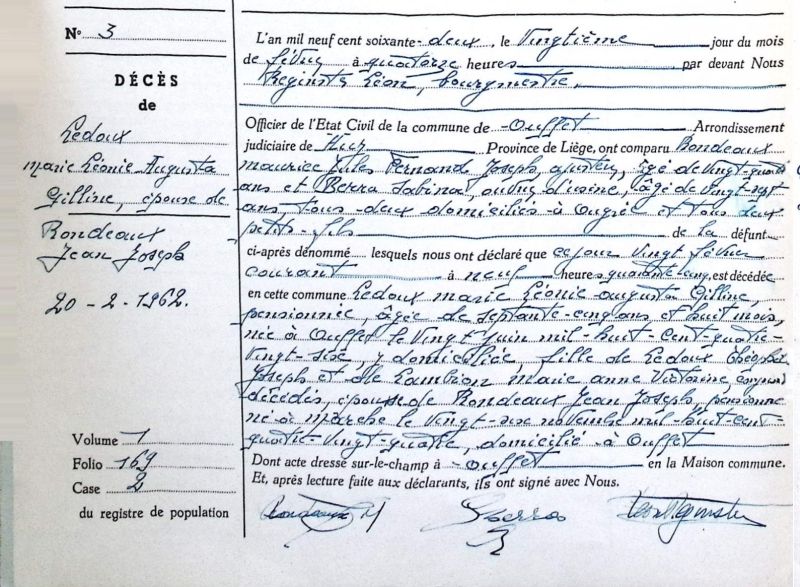 N° 3
DÉCÈS
de
Ledoux
Marie Léonie Augusta
Gilline, épouse de
Rondeaux
Jean Joseph
20-2-1962.
Volume 1
Folio 169
Case 2
du registre de population
L'an mil neuf cent soixante-deux, le vingtième jour du mois
de février à quatorze heures par devant Nous
Reginster Léon, bourgmestre,
Officier de l'Etat Civil de la commune de Ouffet Arrondissement
judiciaire de Huy Province de Liège, ont comparu Rondeaux
Maurice Jules Fernand Joseph, ajusteur, âgé de vingt-quatre
ans et Serra Sabina, ouvr. d'usine, âgé de vingt-sept
ans tous deux domiciliés à Ougrée et tous deux
petits-fils de la défunt
ci-après dénommé lesquels nous ont déclaré que ce jour vingt février
courant à neuf heures quarante cinq, est décédée
en cette commune Ledoux Marie Léonie Augusta Gilline,
pensionnée, âgée de septante-cinq ans et huit mois,
née à Ouffet le vingt juin mil-huit cent quatre-
vingt-six, y domiciliée, fille de Ledoux
Joseph et de Lambion Marie Anne Victorine, conjoints
décédés, épouse de Rondeaux Jean Joseph, pensionné
né à Marche le vingt-six novembre mil-huit-cent-
quatre-vingt-quatre, domicilié à Ouffet
Dont acte dressé sur-le-champ à Ouffet en la Maison commune.
Et, après lecture faite aux déclarants, ils ont signé avec Nous.
Rondeaux M Serra Léon Reginster